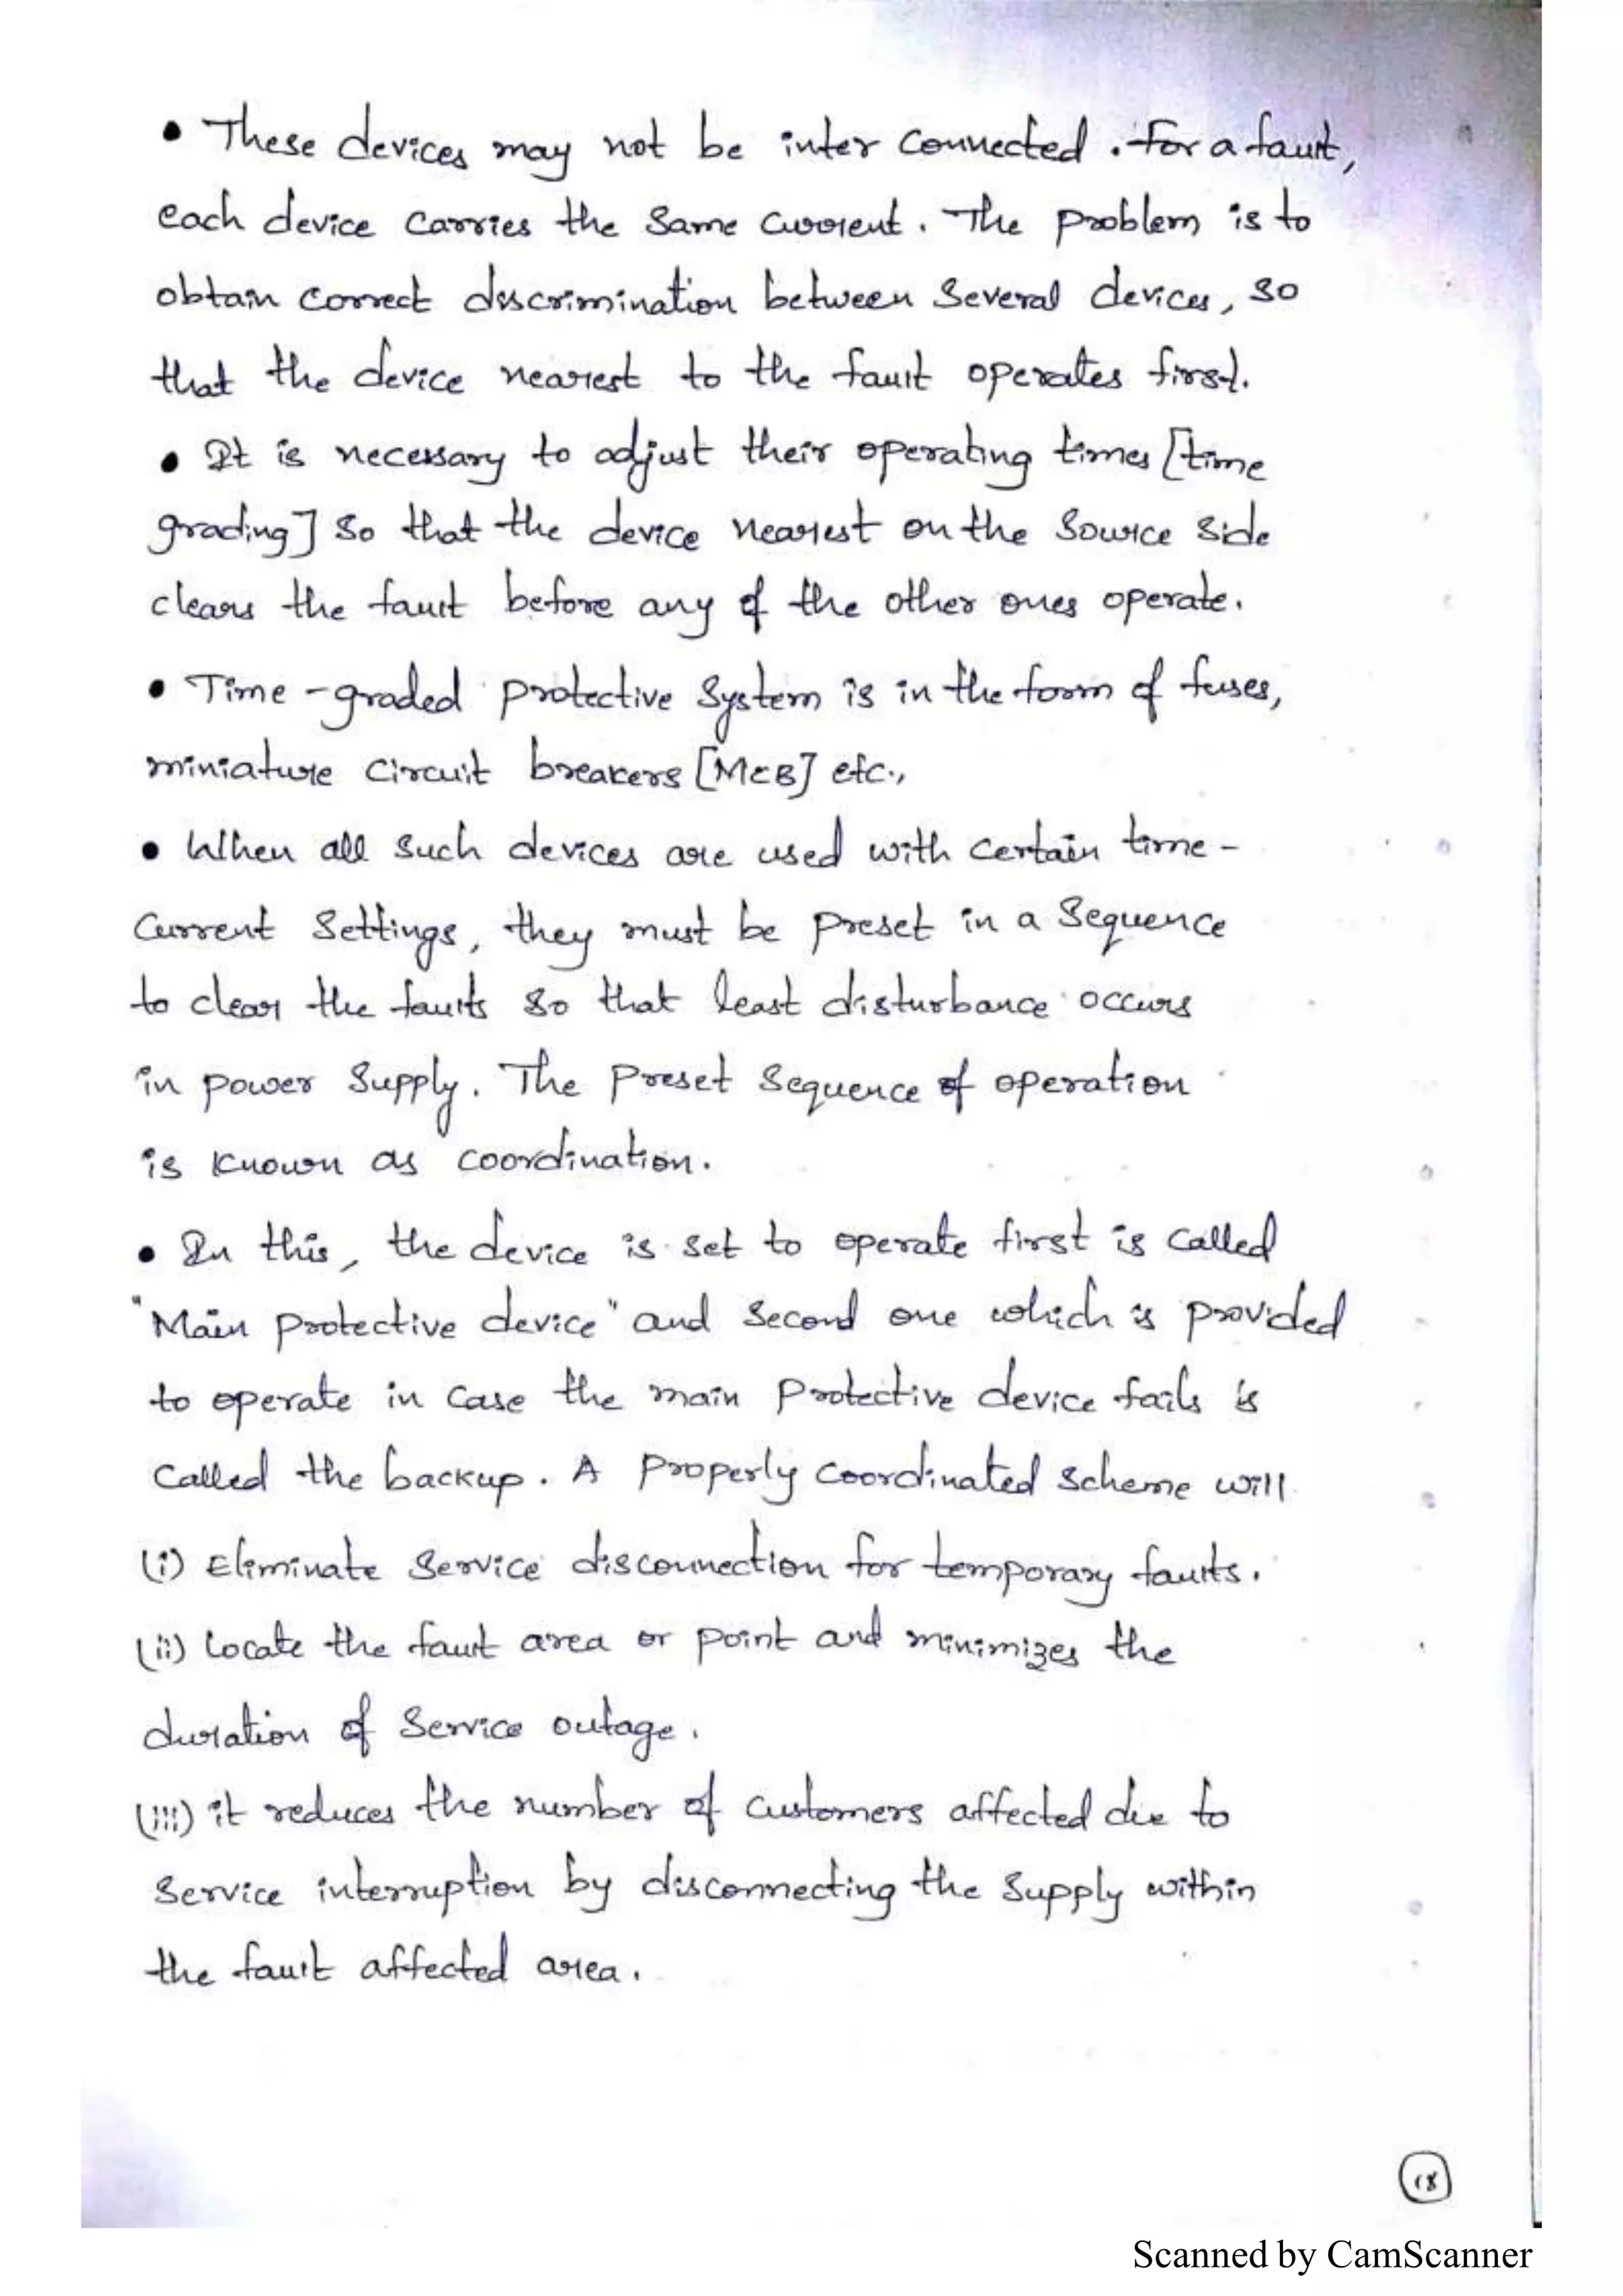 • These devices may not be inter connected. For a fault,
each device carries the same current. The problem is to
obtain correct discrimination between several devices, so
that the device nearest to the fault operates first.
• It is necessary to adjust their operating times [time
grading] so that the device nearest on the source side
clears the fault before any of the other ones operate.
• Time-graded protective system is in the form of fuses,
miniature circuit breakers [MCB] etc.,
• When all such devices are used with certain time-
current settings, they must be preset in a sequence
to clear the faults so that least disturbance occurs
in power supply. The preset sequence of operation
is known as coordination.
• In this, the device is set to operate first is called
"Main protective device" and second one which is provided
to operate in case the main protective device fails is
called the backup. A properly coordinated scheme will
(i) Eliminate service disconnection for temporary faults.
(ii) Locate the fault area or point and minimizes the
duration of service outage.
(iii) it reduces the number of customers affected due to
service interruption by disconnecting the supply within
the fault affected area.
18
Scanned by CamScanner